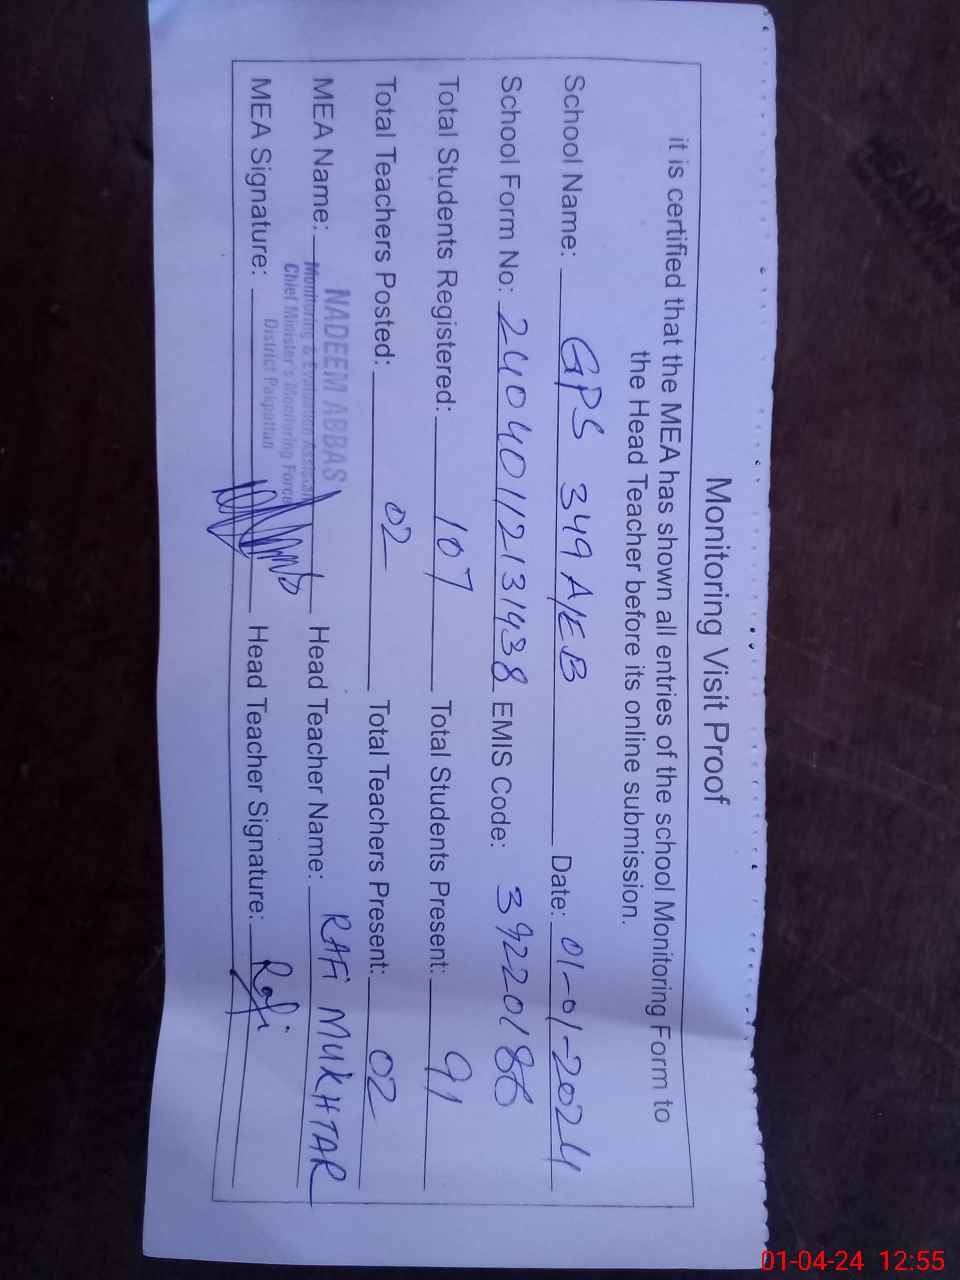 Monitoring Visit Proof
it is certified that the MEA has shown all entries of the school Monitoring Form to
the Head Teacher before its online submission.
School Name: GPS 349 A/EB Date: 01-01-2024
School Form No: 24040112131438 EMIS Code: 39220186
Total Students Registered: 107 Total Students Present: 91
Total Teachers Posted: 02 Total Teachers Present: 02
MEA Name: Head Teacher Name: RAFI MUKHTAR
NADEEM ABBAS
Monitoring & Evaluation Assistant
Chief Minister's Monitoring Force
District Pakpattan
MEA Signature: Head Teacher Signature: Rafi
01-04-24 12:55